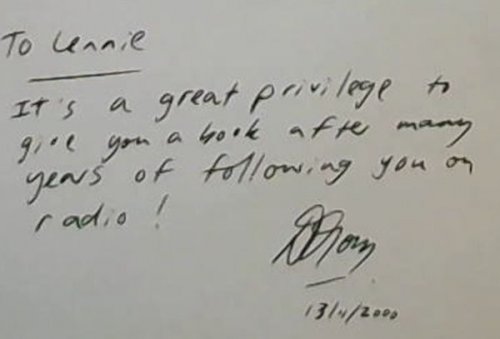 To Lennie
It's a great privilege to
give you a book after many
years of following you on
radio!
13/11/2000